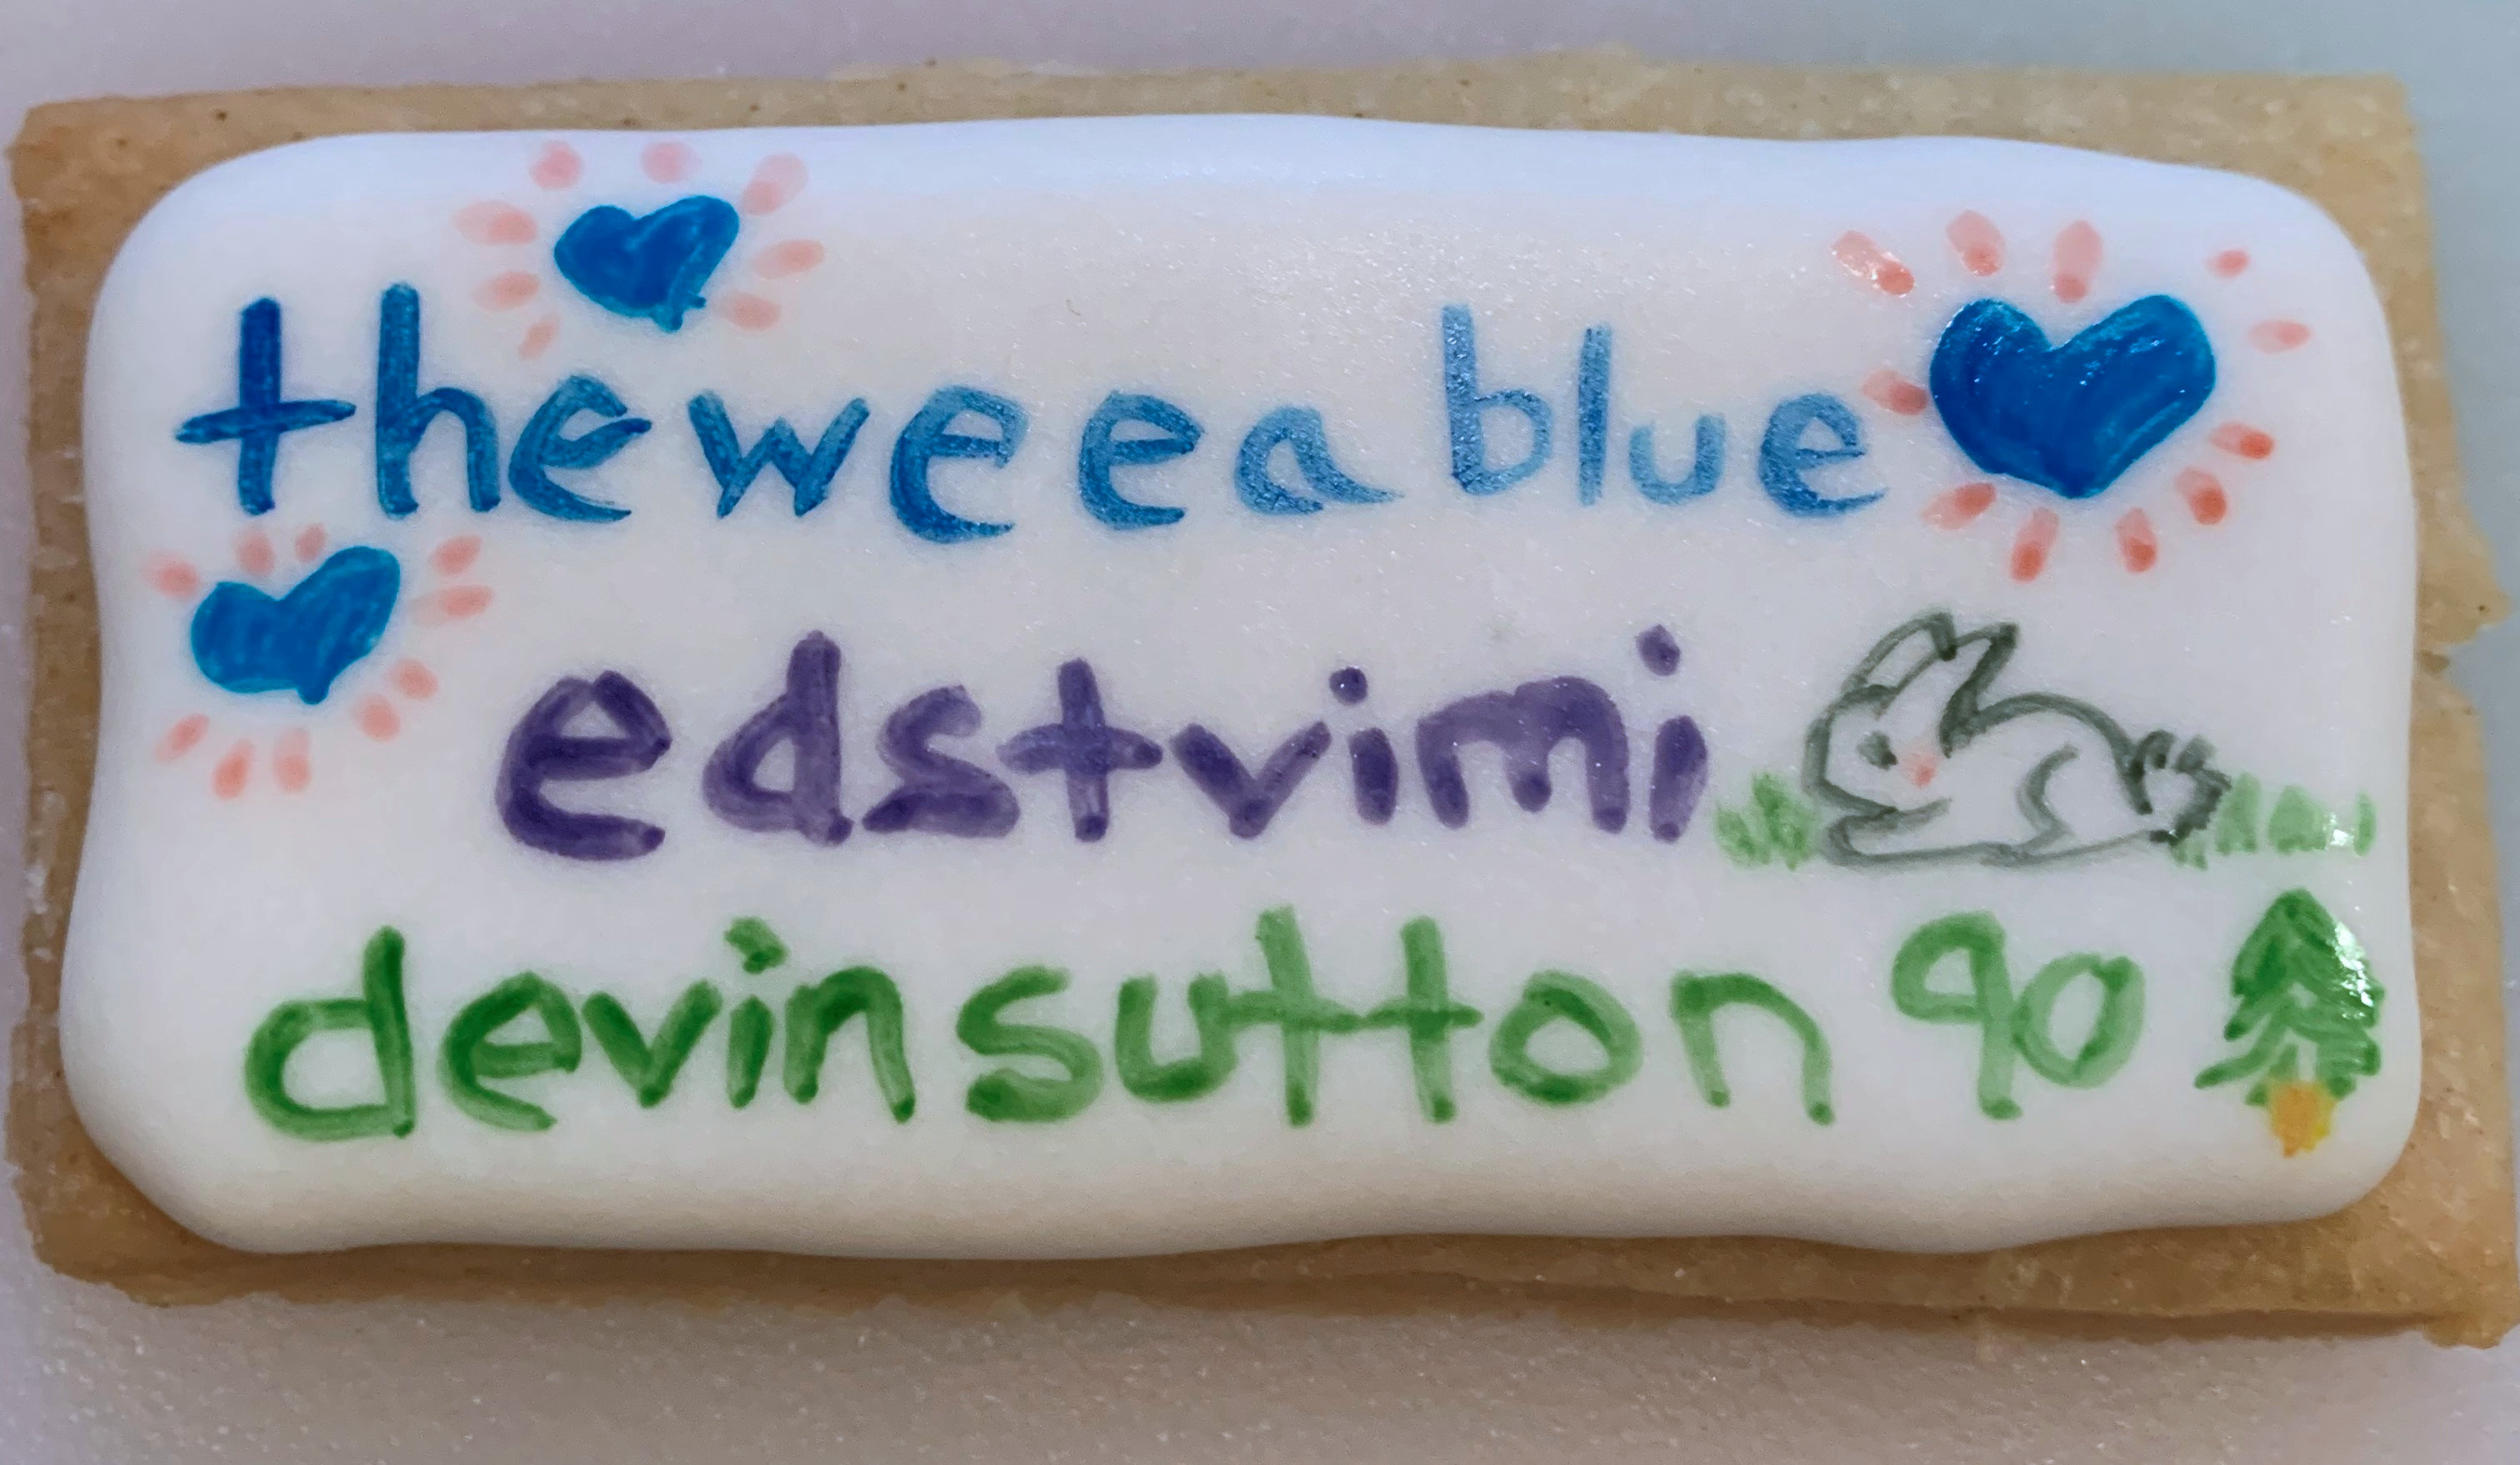 theweeablue
edstvimi
devinsutton90